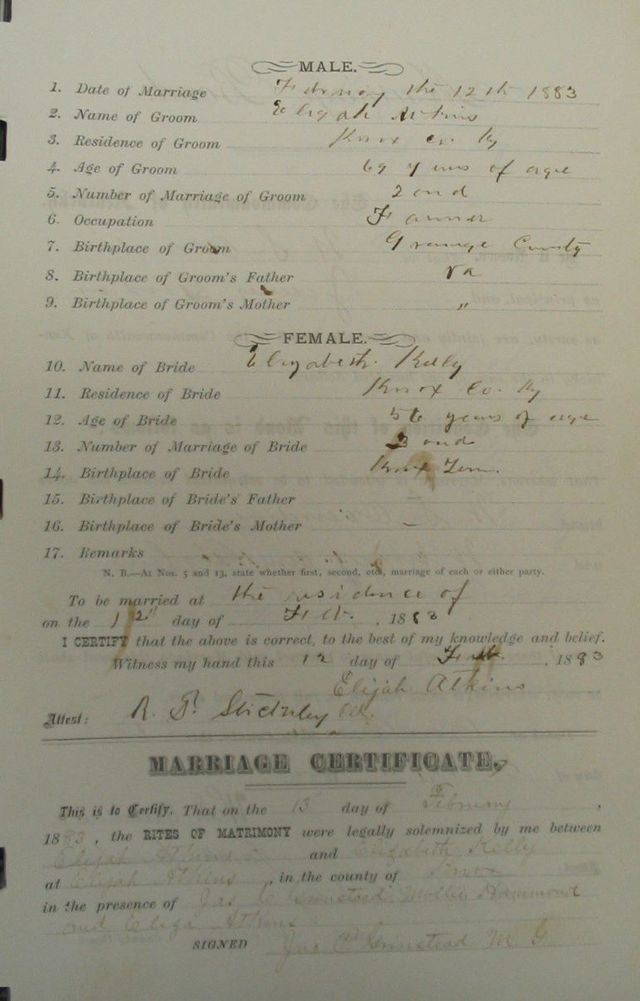 MALE.
1. Date of Marriage February the 12th 1883
2. Name of Groom Elijah Atkins
3. Residence of Groom Knox Co. Ky
4. Age of Groom 69 years of age
5. Number of Marriage of Groom 2ond
6. Occupation Farmer
7. Birthplace of Groom Orange County
8. Birthplace of Groom's Father va
9. Birthplace of Groom's Mother "
FEMALE.
10. Name of Bride Elizabeth Kelly
11. Residence of Bride Knox Co. Ky
12. Age of Bride 56 years of age
13. Number of Marriage of Bride 2ond
14. Birthplace of Bride Knox Tenn.
15. Birthplace of Bride's Father
16. Birthplace of Bride's Mother –
17. Remarks
N. B.—At Nos. 5 and 13, state whether first, second, etc., marriage of each or either party.
To be married at the residence of
on the 12" day of Feb. , 1883
I CERTIFY that the above is correct, to the best of my knowledge and belief.
Witness my hand this 12 day of Feb. , 1883
Elijah Atkins
Attest:
MARRIAGE CERTIFICATE.
This is to Certify, That on the 13 day of February ,
1883, the RITES OF MATRIMONY were legally solemnized by me between
Elijah Atkins and Elizabeth Kelly
at Elijah Atkins , in the county of Knox
in the presence of Jas C Grinstead Mollie Hammond
and Eliza Atkins
SIGNED Jas C Grinstead M G